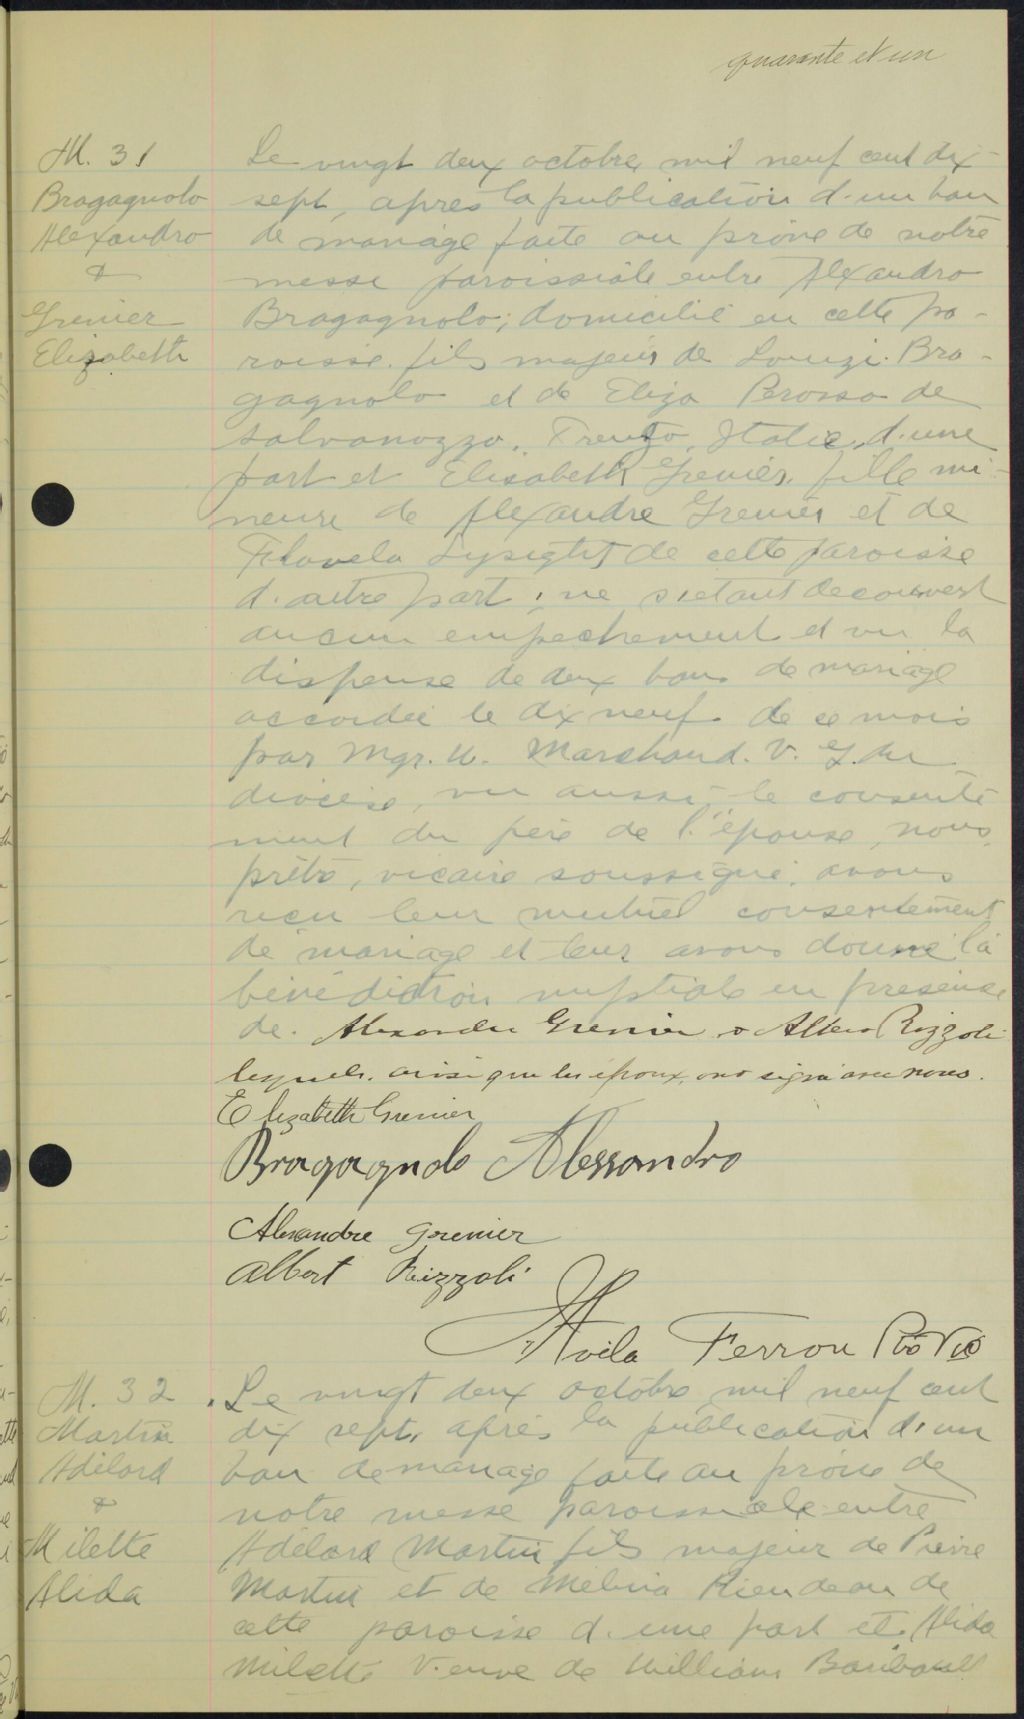 quarante et un
M. 31
Bragagnolo
Alexandro
&
Grenier
Elizabeth
Le vingt deux octobre mil neuf cent dix-
sept, après la publication d'un ban
de mariage faite au prône de notre
messe paroissiale entre Alexandro
Bragagnolo; domicilié en cette pa-
roisse fils majeur de Bra-
gagnolo et de Eliza de
Italie, d'une
part et Elisabeth Grenier, fille mi-
neure de Alexandre Grenier et de
Lysight de cette paroisse
d'autre part; ne s'étant découvert
aucun empechement et vu la
dispense de deux bans de mariage
accordée le dix neuf de ce mois
par Mgr. U. Marchand. V. G. du
diocèse, vu aussi le consente
ment du père de l'épouse, nous,
prêtre, vicaire soussigné, avons
reçu leur mutuel consentement
de mariage et leur avons donné la
bénédiction nuptiale en présence
de. Alexandre Grenier & Albert Rizzoli
lesquels, ainsi que les époux, ont signé avec nous.
Elizabeth Grenier
Bragagnolo Alessandro
Alexandre Grenier
Albert Rizzoli
Avila Ferron Ptre Vic
M. 32
Martin
Adélard
&
Milette
Alida
Le vingt deux octobre mil neuf cent
dix sept, après la publication d'un
ban de mariage faite au prône de
notre messe paroissiale entre
Adélard Martin fils majeur de Pierre
Martin et de Melina Riendeau de
cette paroisse d'une part et Alida
Milette Veuve de William Baribault